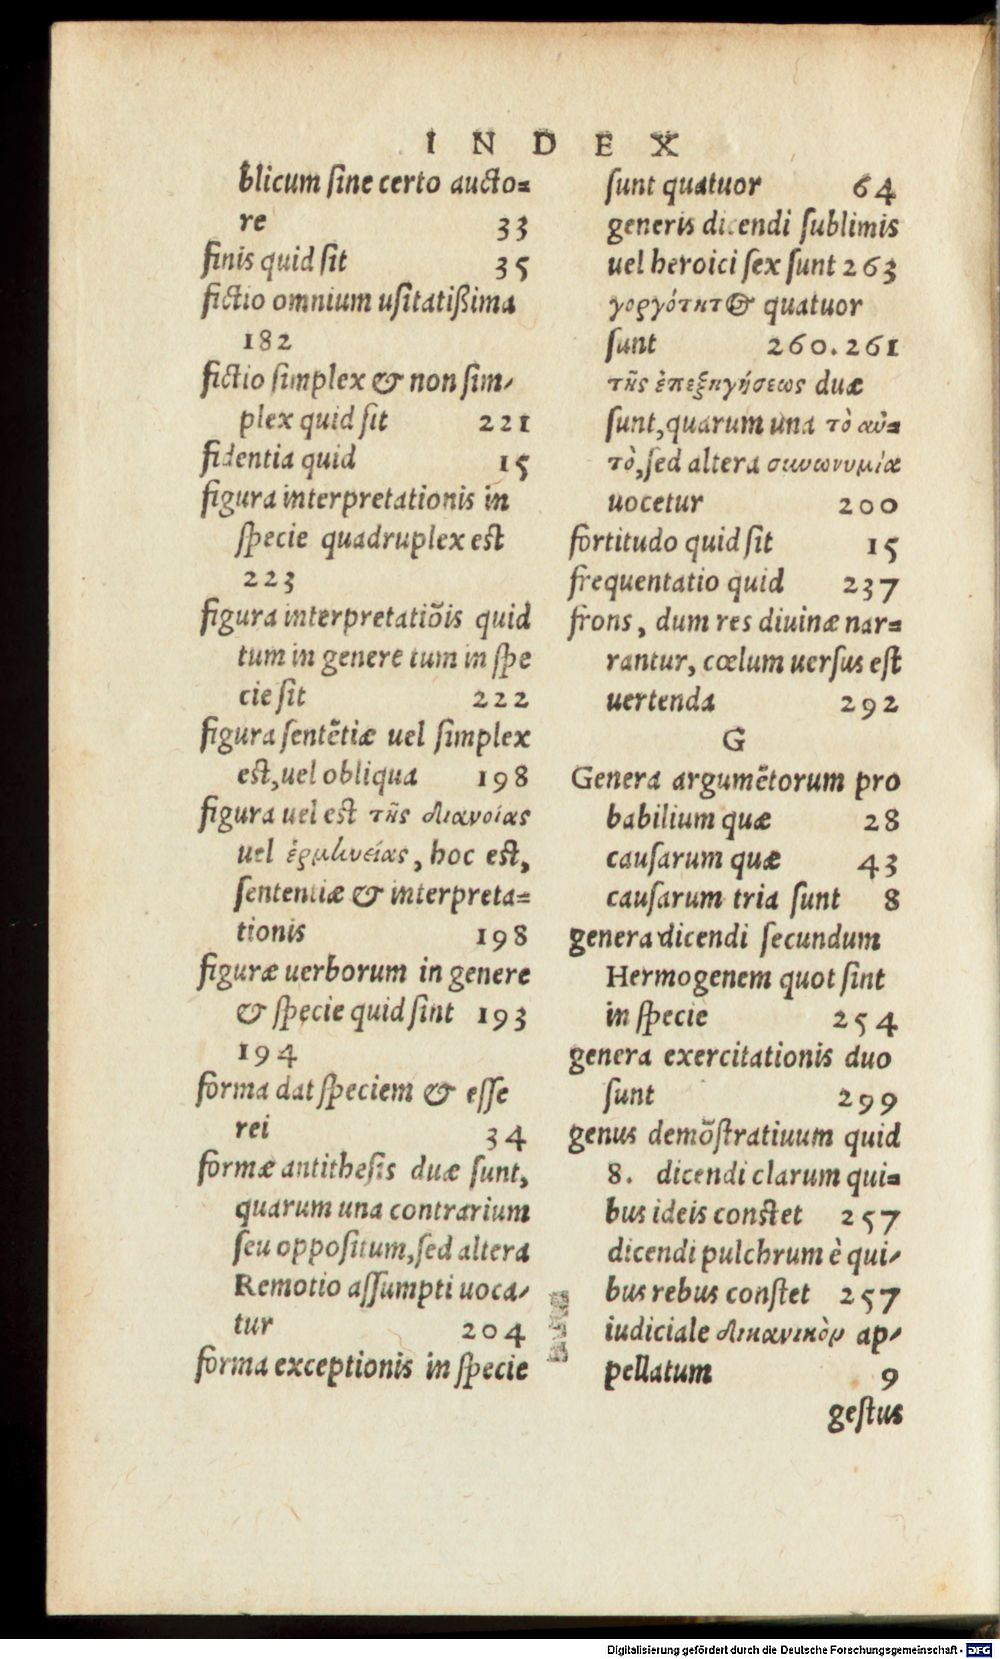 INDEX
blicum sine certo aucto=
re 33
finis quid sit 35
fictio omnium usitatißima
182
fictio simplex & non sim-
plex quid sit 221
fidentia quid 15
figura interpretationis in
specie quadruplex est
223
figura interpretatiõis quid
tum in genere tum in spe
cie sit 222
figura sentẽtiæ uel simplex
est, uel obliqua 198
figura uel est τῆς διανοίας
uel ἑρμηνείας, hoc est,
sententiæ & interpreta=
tionis 198
figuræ uerborum in genere
& specie quid sint 193
194
forma dat speciem & esse
rei 34
formæ antithesis duæ sunt,
quarum una contrarium
seu oppositum, sed altera
Remotio assumpti uoca-
tur 204
forma exceptionis in specie
sunt quatuor 64
generis dicendi sublimis
uel heroici sex sunt 263
γοργότητ& quatuor
sunt 260.261
τῆς ἐπεξηγήσεως duæ
sunt, quarum una τὸ αὐ=
τὸ, sed altera συνωνυμία
uocetur 200
fortitudo quid sit 15
frequentatio quid 237
frons, dum res diuinæ nar=
rantur, cœlum uersus est
uertenda 292
G
Genera argumẽtorum pro
babilium quæ 28
causarum quæ 43
causarum tria sunt 8
genera dicendi secundum
Hermogenem quot sint
in specie 254
genera exercitationis duo
sunt 299
genus demõstratiuum quid
8. dicendi clarum qui=
bus ideis constet 257
dicendi pulchrum è qui-
bus rebus constet 257
iudiciale δικανικὸν ap-
pellatum 9
gestus
Digitalisierung gefördert durch die Deutsche Forschungsgemeinschaft - DFG